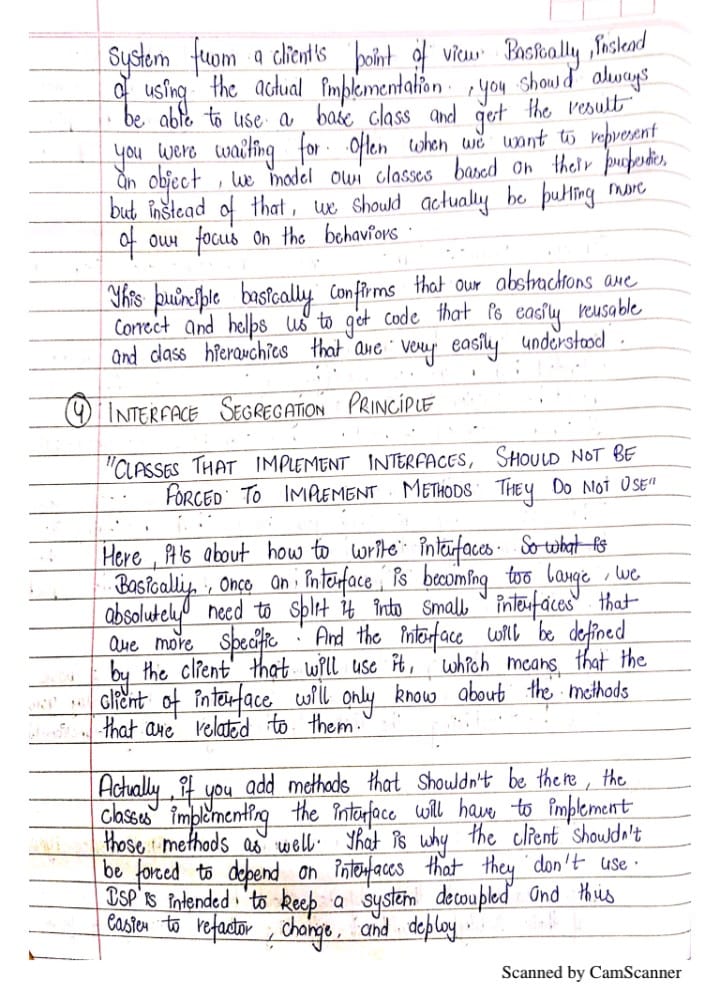 System from a client's point of view. Basically, instead
of using the actual implementation, you should always
be able to use a base class and get the result
you were waiting for. Often when we want to represent
an object, we model our classes based on their properties,
but instead of that, we should actually be putting more
of our focus on the behaviors.
This principle basically confirms that our abstractions are
correct and helps us to get code that is easily reusable
and class hierarchies that are very easily understood.
4 INTERFACE SEGREGATION PRINCIPLE
"CLASSES THAT IMPLEMENT INTERFACES, SHOULD NOT BE
FORCED TO IMPLEMENT METHODS THEY DO NOT USE"
Here, it's about how to write interfaces. So what is
Basically, once an interface is becoming too large, we
absolutely need to split it into small interfaces that
are more specific. And the interface will be defined
by the client that will use it, which means that the
client of interface will only know about the methods
that are related to them.
Actually, if you add methods that shouldn't be there, the
classes implementing the interface will have to implement
those methods as well. That is why the client shouldn't
be forced to depend on interfaces that they don't use.
ISP is intended to keep a system decoupled and thus
easier to refactor, change, and deploy.
Scanned by CamScanner